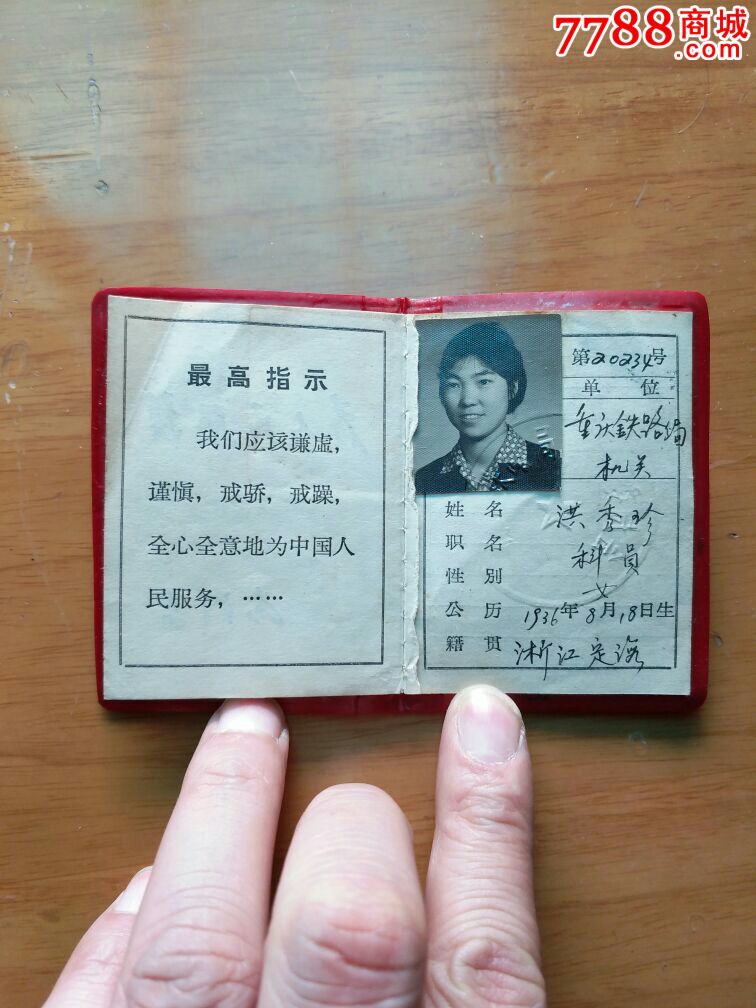 7788商城
.com
最高指示
我们应该谦虚,
谨慎,戒骄,戒躁,
全心全意地为中国人
民服务,……
第20234号
单 位
重庆铁路局
机关
姓 名 洪秀珍
职 名 科員
性 别 女
公 历 1936年8月18日生
籍 贯 浙江定海